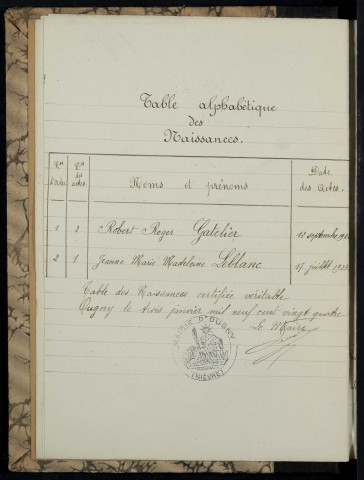 Table alphabétique
des
Naissances.
Nos d'ordre Nos des actes Noms et prénoms Date des Actes.
1 2 Robert Roger Gatelier 12 septembre
2 1 Jeanne Marie Madeleine Leblanc 17 juillet 1923
Table des Naissances certifiée véritable
Ougny le trois janvier mil neuf cent vingt quatre
Le Maire
MAIRIE D'OUGNY
(NIÈVRE)